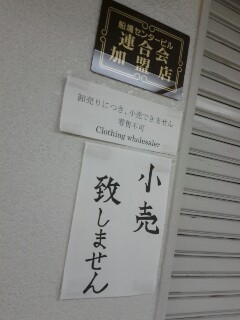 船場センタービル
連合会
加盟店
卸売りにつき、小売できません
零售不可
Clothing wholesaler
小売
致しません